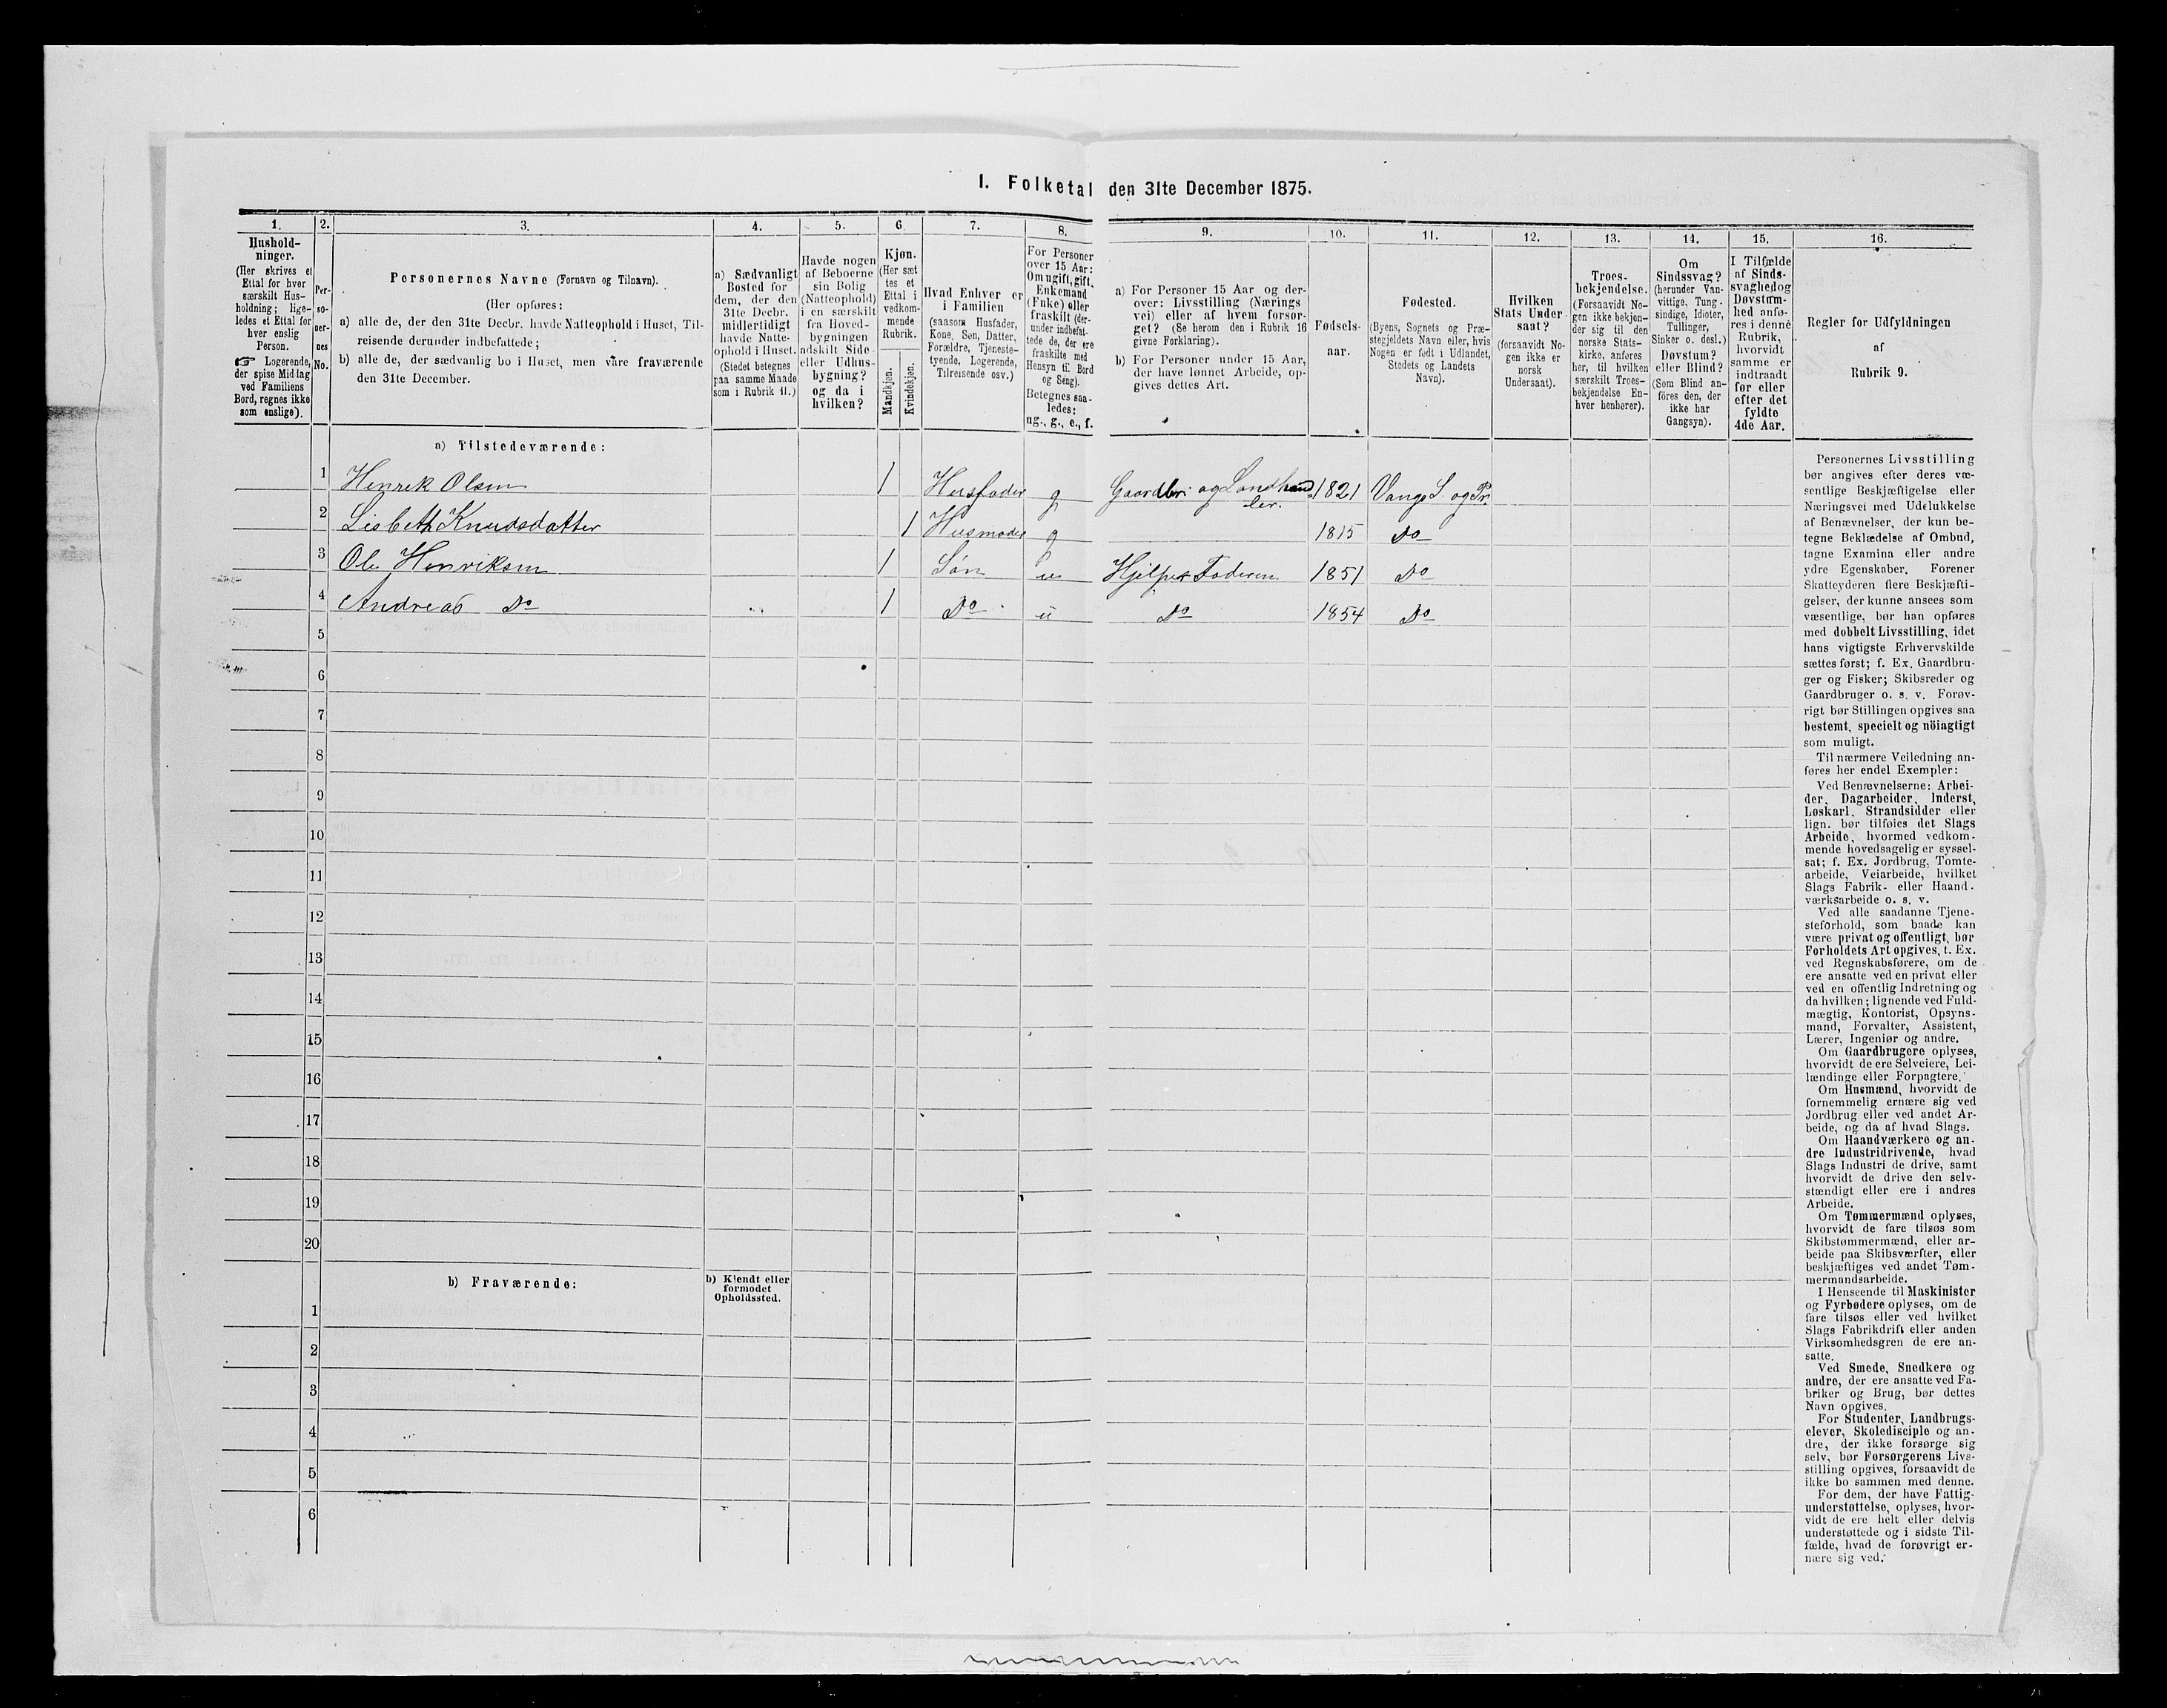 I. Folketal den 31te December 1875.
1.
2.
3.
4.
5.
6.
7.
8.
9.
10.
11.
12.
13.
14.
15.
16.
Hushold-
ninger.
(Her skrives et
Ettal for hver
særskilt Hus-
holdning; lige-
ledes et Ettal for
hver enslig
Person.
☞ Logerende,
der spise Middag
ved Familiens
Bord, regnes ikke
som enslige).
Per-
so-
ner-
nes
No.
Personernes Navne (Fornavn og Tilnavn).
(Her opføres:
a) alle de, der den 31te Decbr. havde Natteophold i Huset, Til-
reisende derunder indbefattede;
b) alle de, der sædvanlig bo i Huset, men vare fraværende
den 31te December.
a) Sædvanligt
Bosted for
dem, der den
31te Decbr.
midlertidigt
havde Natte-
ophold i Huset.
(Stedet betegnes
paa samme Maade
som i Rubrik 11.)
Havde nogen
af Beboerne
sin Bolig
(Natteophold)
i en særskilt
fra Hoved-
bygningen
adskilt Side-
eller Udhus-
bygning?
og da i
hvilken?
Kjøn.
(Her sæt
tes et
Ettal i
vedkom-
mende
Rubrik.
Mandkjøn.
Kvindekjøn.
Hvad Enhver er
i Familien
(saasom Husfader,
Kone, Søn, Datter,
Forældre, Tjeneste-
tyende, Logerende,
Tilreisende osv.)
For Personer
over 15 Aar:
Om ugift, gift,
Enkemand
(Enke) eller
fraskilt (der-
under indbefat-
tede de, der ere
fraskilte med
Hensyn til Bord
og Seng).
Betegnes saa-
ledes:
ug., g., e., f.
a) For Personer 15 Aar og der-
over: Livsstilling (Nærings
vei) eller af hvem forsør-
get? (Se herom den i Rubrik 16
givne Forklaring).
b) For Personer under 15 Aar,
der have lønnet Arbeide, op-
gives dettes Art.
Fødsels-
aar.
Fødested.
(Byens, Sognets og Præ-
stegjeldets Navn eller, hvis
Nogen er født i Udlandet,
Stedets og Landets
Navn).
Hvilken
Stats Under-
saat?
(forsaavidt No-
gen ikke er
norsk
Undersaat).
Troes-
bekjendelse.
(Forsaavidt No-
gen ikke bekjen-
der sig til den
norske Stats-
kirke, anføres
her, til hvilken
særskilt Troes-
bekjendelse En-
hver henhører).
Om
Sindssvag?
(herunder Van-
vittige, Tung-
sindige, Idioter,
Tullinger,
Sinker o. desl.)
Døvstum?
eller Blind?
(Som Blind an-
føres den, der
ikke har
Gangsyn).
I Tilfælde
af Sinds-
svaghed og
Døvstum-
hed anfø-
res i denne
Rubrik,
hvorvidt
samme er
indtraadt
før eller
efter det
fyldte
4de Aar.
Regler for Udfyldningen
af
Rubrik 9.
a) Tilstedeværende:
1 Henrik Olsen 1 Husfader g Gaardbr: og Landhand-ler. 1821 Vangs S. og Pr.
2 Lisbeth Knudsdatter 1 Husmoder g 1815 Do
3 Ole Henriksen 1 Søn u Hjelper Faderen 1851 Do
4 Andreas Do 1 Do u Do 1854 Do
5
6
7
8
9
10
11
12
13
14
15
16
17
18
19
20
b) Fraværende:
b) Kjendt eller
formodet
Opholdssted.
1
2
3
4
5
6
Personernes Livsstilling
bør angives efter deres væ-
sentlige Beskjæftigelse eller
Næringsvei med Udelukkelse
af Benævnelser, der kun be-
tegne Beklædelse af Ombud,
tagne Examina eller andre
ydre Egenskaber. Forener
Skatteyderen flere Beskjæfti-
gelser, der kunne ansees som
væsentlige, bør han opføres
med dobbelt Livsstilling, idet
hans vigtigste Erhvervskilde
sættes først; f. Ex. Gaardbru-
ger og Fisker; Skibsreder og
Gaardbruger o. s. v. Forøv-
rigt bør Stillingen opgives saa
bestemt, specielt og nöiagtigt
som muligt.
Til nærmere Veiledning an-
føres her endel Exempler:
Ved Benævnelserne: Arbei-
der, Dagarbeider, Inderst,
Løskarl, Strandsidder eller
lign. bør tilføies det Slags
Arbeide, hvormed vedkom-
mende hovedsagelig er syssel-
sat; f. Ex. Jordbrug, Tomte-
arbeide, Veiarbeide, hvilket
Slags Fabrik- eller Haand-
værksarbeide o. s. v.
Ved alle saadanne Tjene-
steforhold, som baade kan
være privat og offentligt, bør
Forholdets Art opgives, t. Ex.
ved Regnskabsførere, om de
ere ansatte ved en privat eller
ved en offentlig Indretning og
da hvilken; lignende ved Fuld-
mægtig, Kontorist, Opsyns-
mand, Forvalter, Assistent,
Lærer, Ingeniør og andre.
Om Gaardbrugere oplyses,
hvorvidt de ere Selveiere, Lei-
lændinge eller Forpagtere.
Om Husmænd, hvorvidt de
fornemmelig ernære sig ved
Jordbrug eller ved andet Ar-
beide, og da af hvad Slags.
Om Haandværkere og an-
dre Industridrivende, hvad
Slags Industri de drive, samt
hvorvidt de drive den selv-
stændigt eller ere i andres
Arbeide.
Om Tømmermænd oplyses,
hvorvidt de fare tilsøs som
Skibstømmermænd, eller ar-
beide paa Skibsværfter, eller
beskjæftiges ved andet Tøm-
mermandsarbeide.
I Henseende til Maskinister
og Fyrbødere oplyses, om de
fare tilsøs eller ved hvilket
Slags Fabrikdrift eller anden
Virksomhedsgren de ere an-
satte.
Ved Smede, Snedkere og
andre, der ere ansatte ved Fa-
briker og Brug, bør dettes
Navn opgives.
For Studenter, Landbrugs-
elever, Skoledisciple og an-
dre, der ikke forsørge sig
selv, bør Forsørgerens Livs-
stilling opgives, forsaavidt de
ikke bo sammen med denne.
For dem, der have Fattig-
understøttelse, oplyses, hvor-
vidt de ere helt eller delvis
understøttede og i sidste Til-
fælde, hvad de forøvrigt er-
nære sig ved.